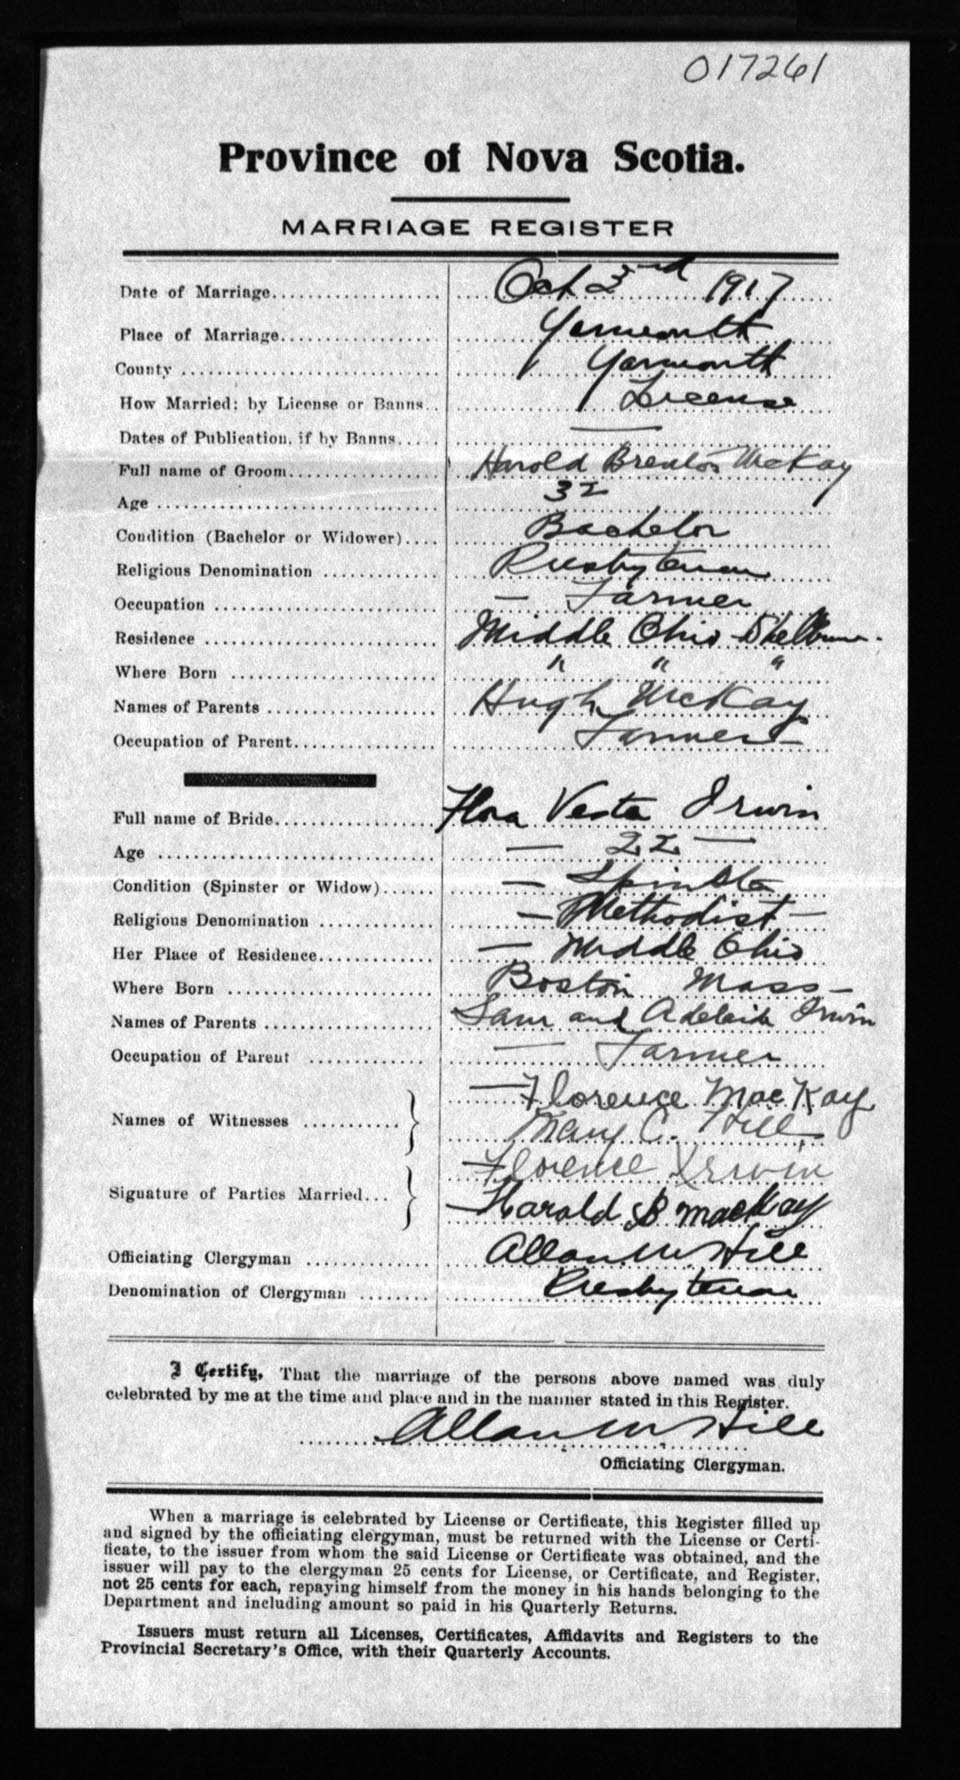 017261
Province of Nova Scotia.
MARRIAGE REGISTER
Date of Marriage.................... Oct 3rd 1917
Place of Marriage.................. Yarmouth
County .............................. Yarmouth
How Married; by License or Banns.. License
Dates of Publication, if by Banns..... —
Full name of Groom.................. Harold Brenton McKay
Age ................................. 32
Condition (Bachelor or Widower).... Bachelor
Religious Denomination ............. Presbyterian
Occupation .......................... — Farmer
Residence ........................... Middle Ohio Shelburne.
Where Born ........................ " " "
Names of Parents .................... Hugh McKay
Occupation of Parent................ Farmer —
Full name of Bride.................. Flora Vesta Irwin
Age ................................. — 22 —
Condition (Spinster or Widow)...... — Spinster
Religious Denomination ............. — Methodist —
Her Place of Residence.............. — Middle Ohio
Where Born ........................ Boston Mass —
Names of Parents .................... Sam and Adelaide Irwin
Occupation of Parent .............. — Farmer
Names of Witnesses ........... } — Florence MacKay
Mary C. Hill
Signature of Parties Married... } — Florence Irwin
— Harold B MacKay
Officiating Clergyman .............. Allan W. Hill
Denomination of Clergyman ........ Presbyterian
I Certify, That the marriage of the persons above named was duly
celebrated by me at the time and place and in the manner stated in this Register.
Allan W Hill
Officiating Clergyman.
When a marriage is celebrated by License or Certificate, this Register filled up
and signed by the officiating clergyman, must be returned with the License or Certi-
ficate, to the issuer from whom the said License or Certificate was obtained, and the
issuer will pay to the clergyman 25 cents for License, or Certificate, and Register,
not 25 cents for each, repaying himself from the money in his hands belonging to the
Department and including amount so paid in his Quarterly Returns.
Issuers must return all Licenses, Certificates, Affidavits and Registers to the
Provincial Secretary's Office, with their Quarterly Accounts.